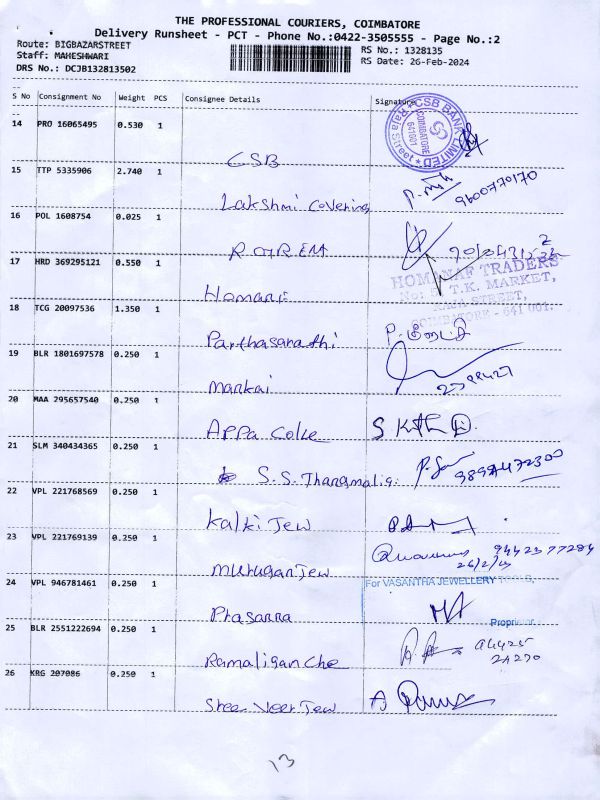 THE PROFESSIONAL COURIERS, COIMBATORE
Delivery Runsheet - PCT - Phone No.:0422-3505555 - Page No.:2
Route: BIGBAZARSTREET
Staff: MAHESHWARI
DRS No.: DCJB132813502
RS No.: 1328135
RS Date: 26-Feb-2024
S No Consignment No Weight PCS Consignee Details Signature
14 PRO 16065495 0.530 1
CSB
CSB BANK LIMITED
Raja Street
COIMBATORE
641001
15 TTP 5335906 2.740 1
Lakshmi Covering
9600770170
16 POL 1608754 0.025 1
17 HRD 369295121 0.550 1
TRADERS
T.K. MARKET,
STREET,
COIMBATORE - 641 001.
18 TCG 20097536 1.350 1
Parthasarathi
19 BLR 1801697578 0.250 1
Mankai
20 MAA 295657540 0.250 1
Appa Coke
21 SLM 340434365 0.250 1
S.S. Thangmalig.
9894472300
22 VPL 221768569 0.250 1
Kalki Jew
23 VPL 221769139 0.250 1
Murugan Jew
9442377284
26/2/
24 VPL 946781461 0.250 1
For VASANTHA JEWELLERY TOOLS,
Proprietor
25 BLR 2551222694 0.250 1
Ramaligan Che
26 KRG 207086 0.250 1
Shee Veer Jew
13